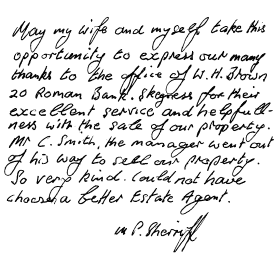 May my wife and myself take this
opportunity to express our many
thanks to the office of W.H. Brown
20 Roman Bank. Skegness for their
excellent service and helpfull-
ness with the sale of our property.
Mr C. Smith, the manager went out
of his way to sell our property.
So very kind. Could not have
choosen a better Estate Agent.
M P. Sherriff